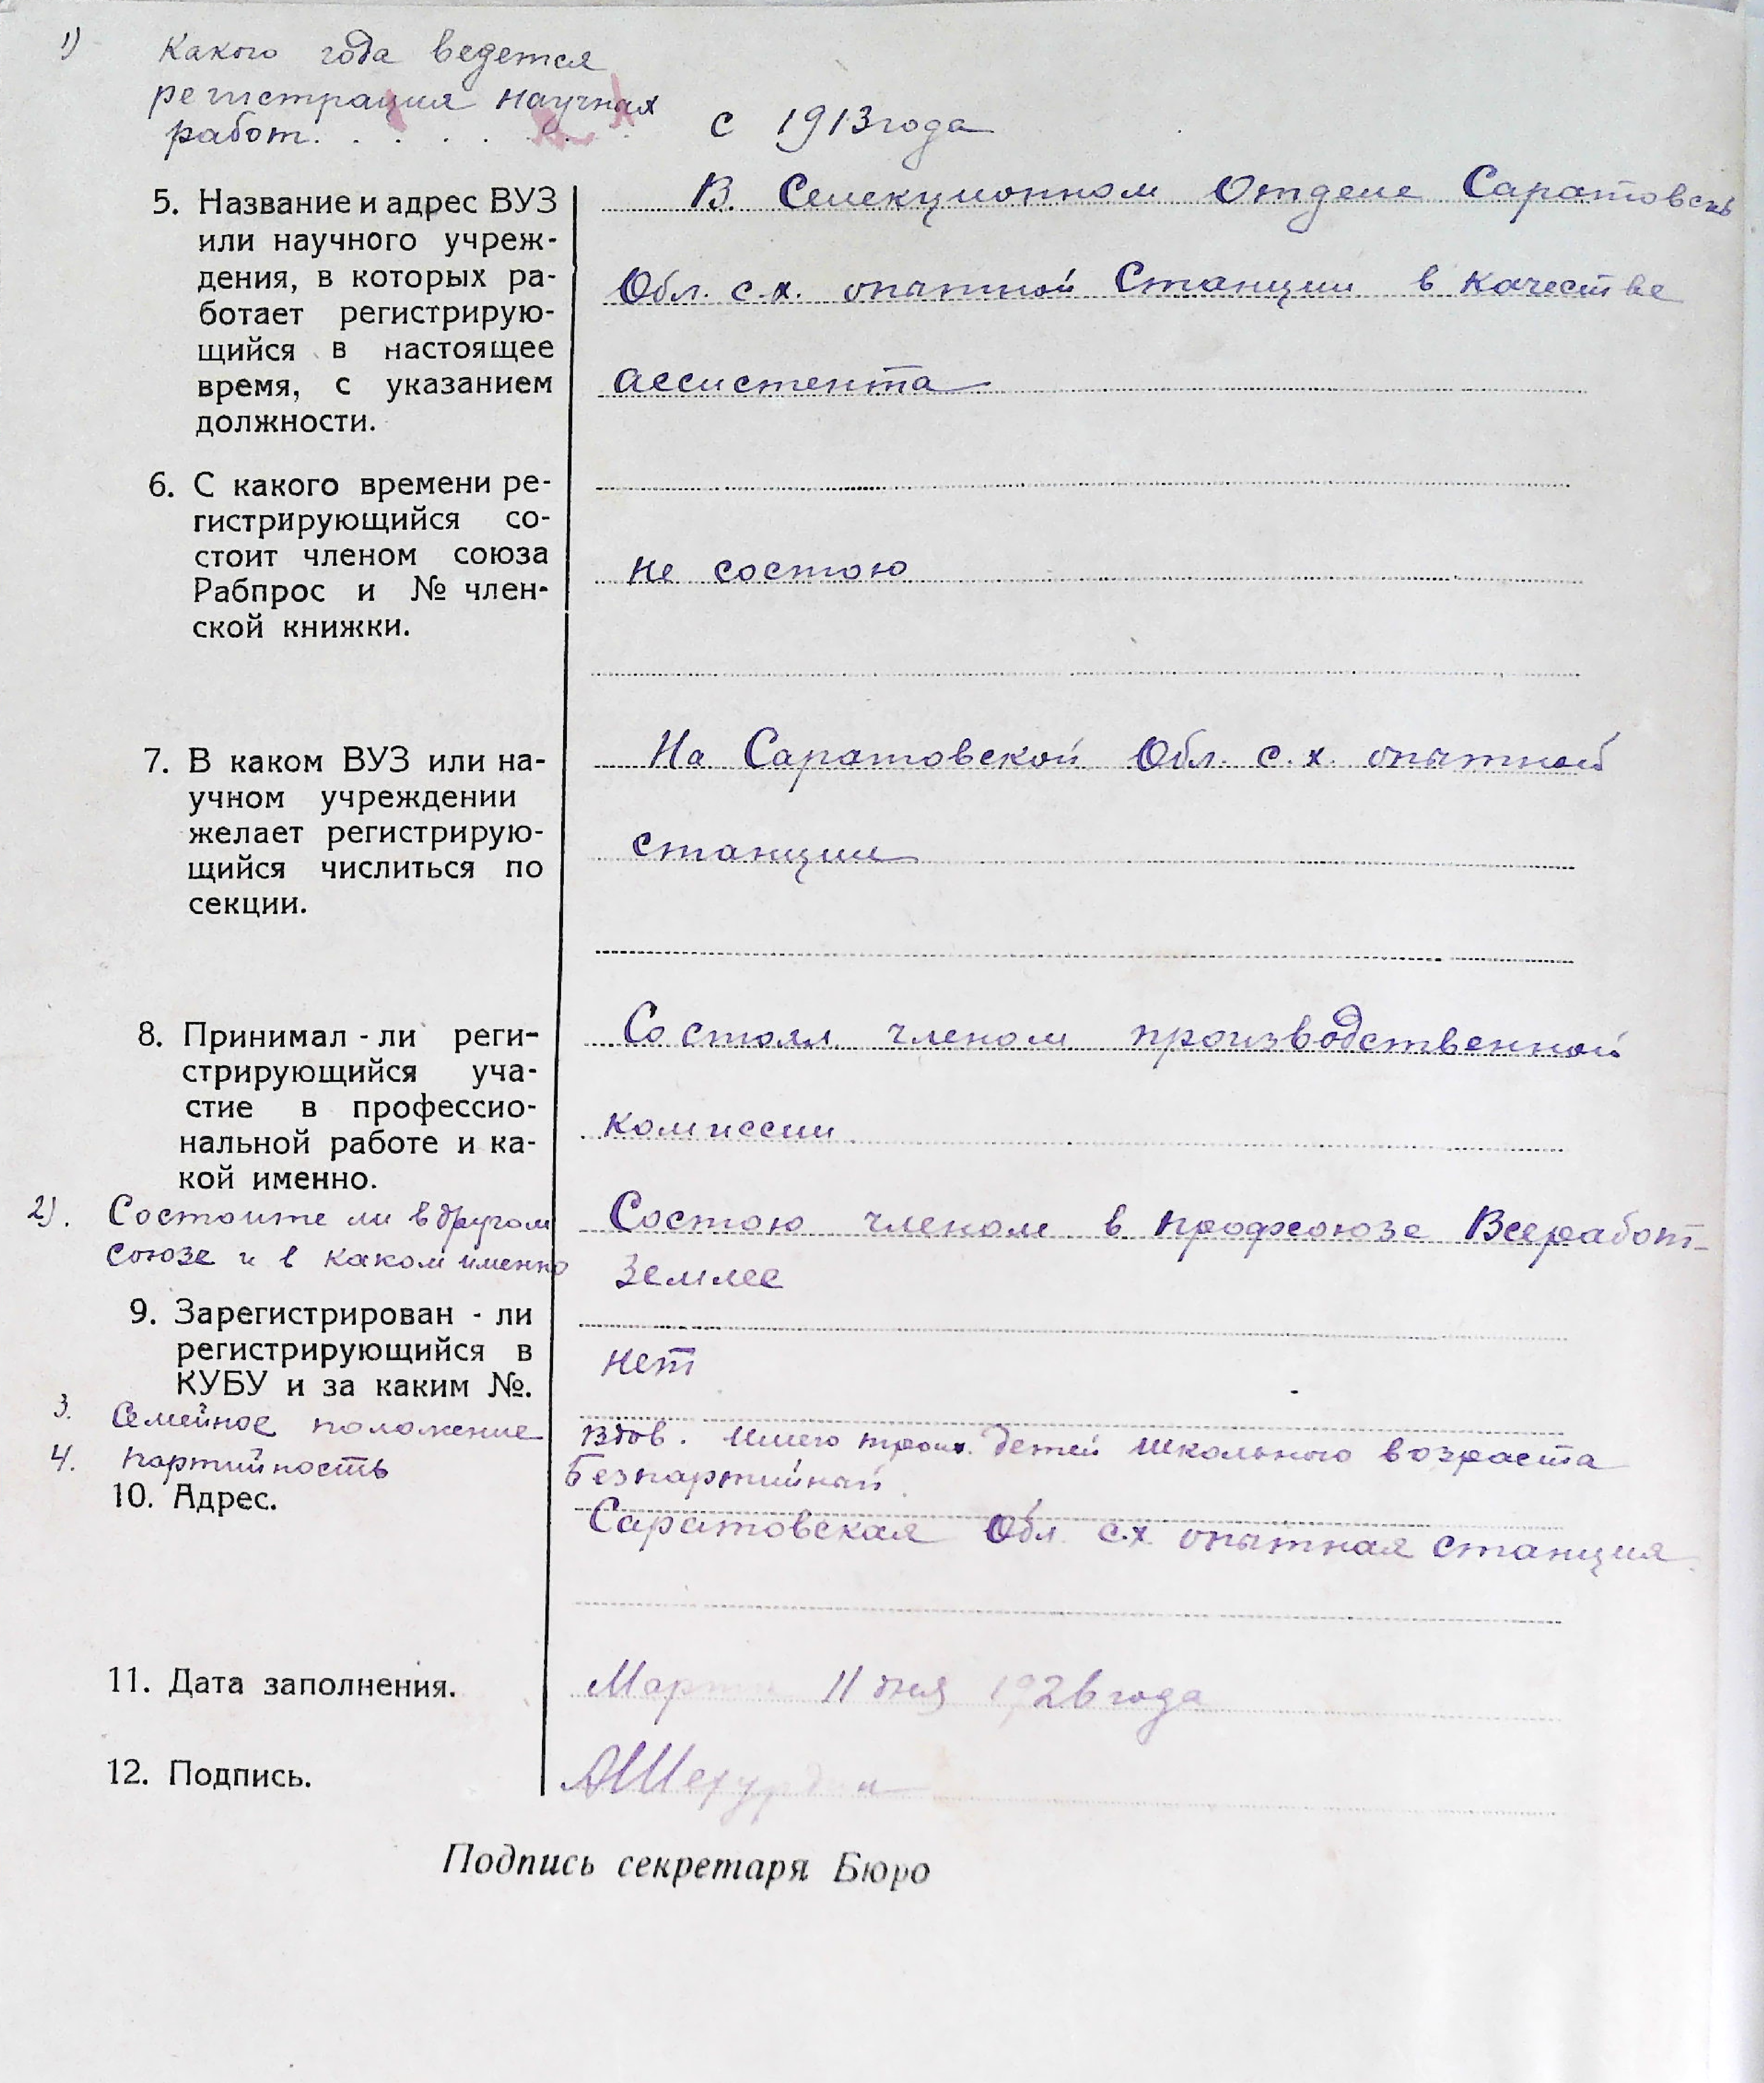 1) Какого года ведется
регистрация научных
работ. . . . . . . с 1913 года
5. Название и адрес ВУЗ
или научного учреж-
дения, в которых ра-
ботает регистрирую-
щийся в настоящее
время, с указанием
должности.
В Селекционном Отделе Саратовск
Обл. с.х. опытной Станции в качестве
ассистента
6. С какого времени ре-
гистрирующийся со-
стоит членом союза
Рабпрос и № член-
ской книжки.
не состою
7. В каком ВУЗ или на-
учном учреждении
желает регистрирую-
щийся числиться по
секции.
На Саратовской Обл. с.х. опытной
станции
8. Принимал-ли реги-
стрирующийся уча-
стие в профессио-
нальной работе и ка-
кой именно.
Состоял членом производственной
комиссии
2). Состоите ли в другом
союзе и в каком именно
Состою членом в профсоюзе Всеработ-
землес
9. Зарегистрирован-ли
регистрирующийся в
КУБУ и за каким №.
нет
3. Семейное положение
Вдов. Имею троих детей школьного возраста
4. партийность
Безпартийный
10. Адрес.
Саратовская Обл. с.х. опытная станция
11. Дата заполнения.
Марта 11 дня 1926 года
12. Подпись.
АШехурдин
Подпись секретаря Бюро